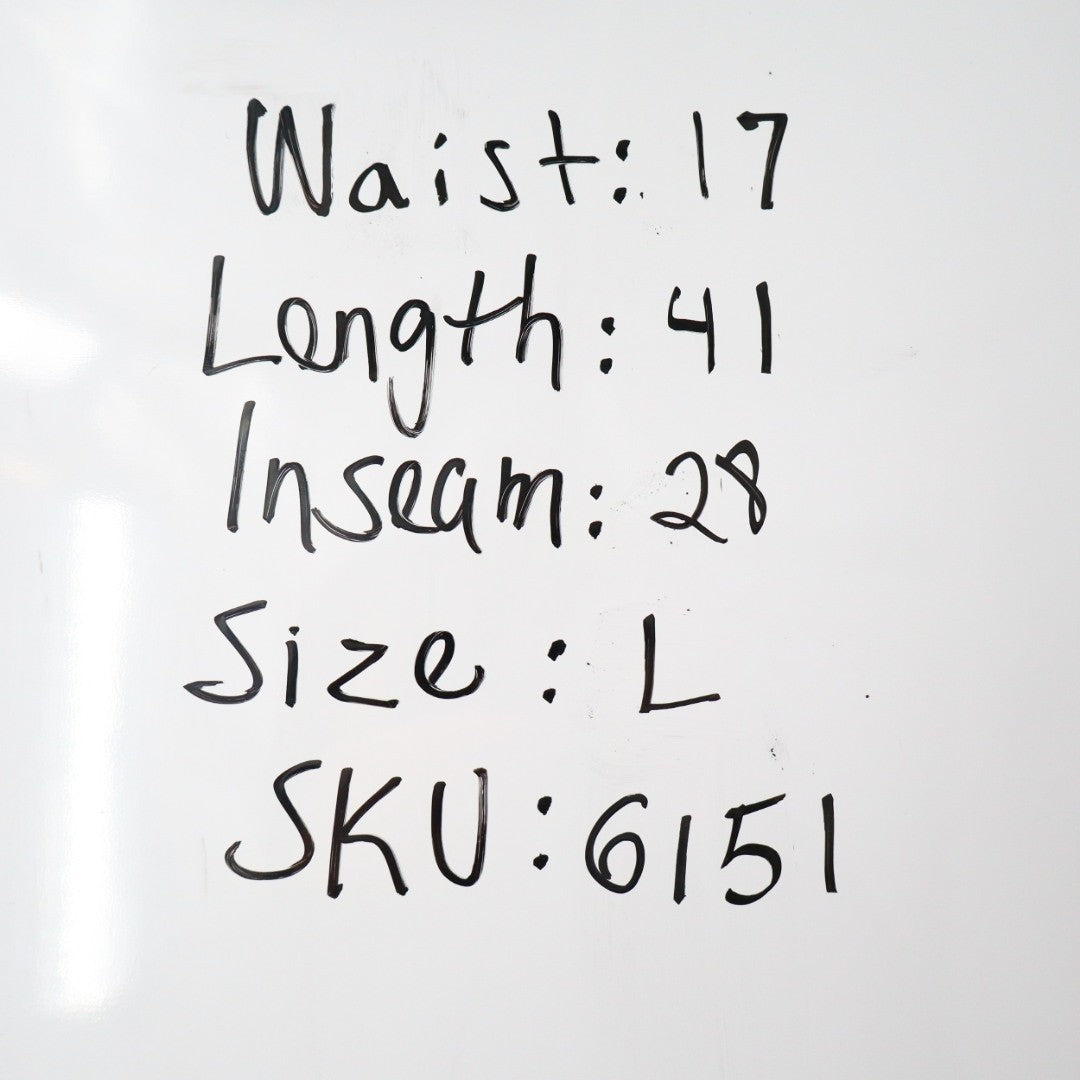 Waist: 17
Length: 41
Inseam: 28
Size: L
SKU: 6151